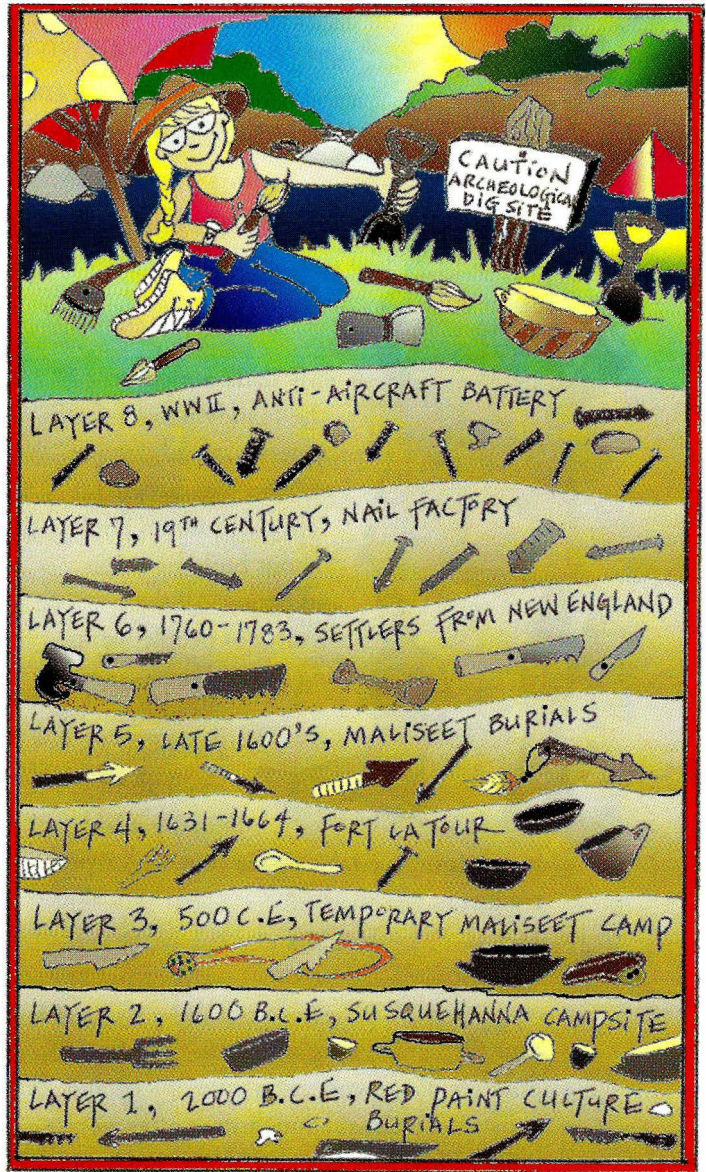 CAUTION
ARCHEOLOGICAL
DIG SITE
LAYER 8, WWII, ANTI-AIRCRAFT BATTERY
LAYER 7, 19TH CENTURY, NAIL FACTORY
LAYER 6, 1760-1783, SETTLERS FROM NEW ENGLAND
LAYER 5, LATE 1600'S, MALISEET BURIALS
LAYER 4, 1631-1664, FORT LA TOUR
LAYER 3, 500 C.E, TEMPORARY MALISEET CAMP
LAYER 2, 1600 B.C.E, SUSQUEHANNA CAMPSITE
LAYER 1, 2000 B.C.E, RED PAINT CULTURE
BURIALS